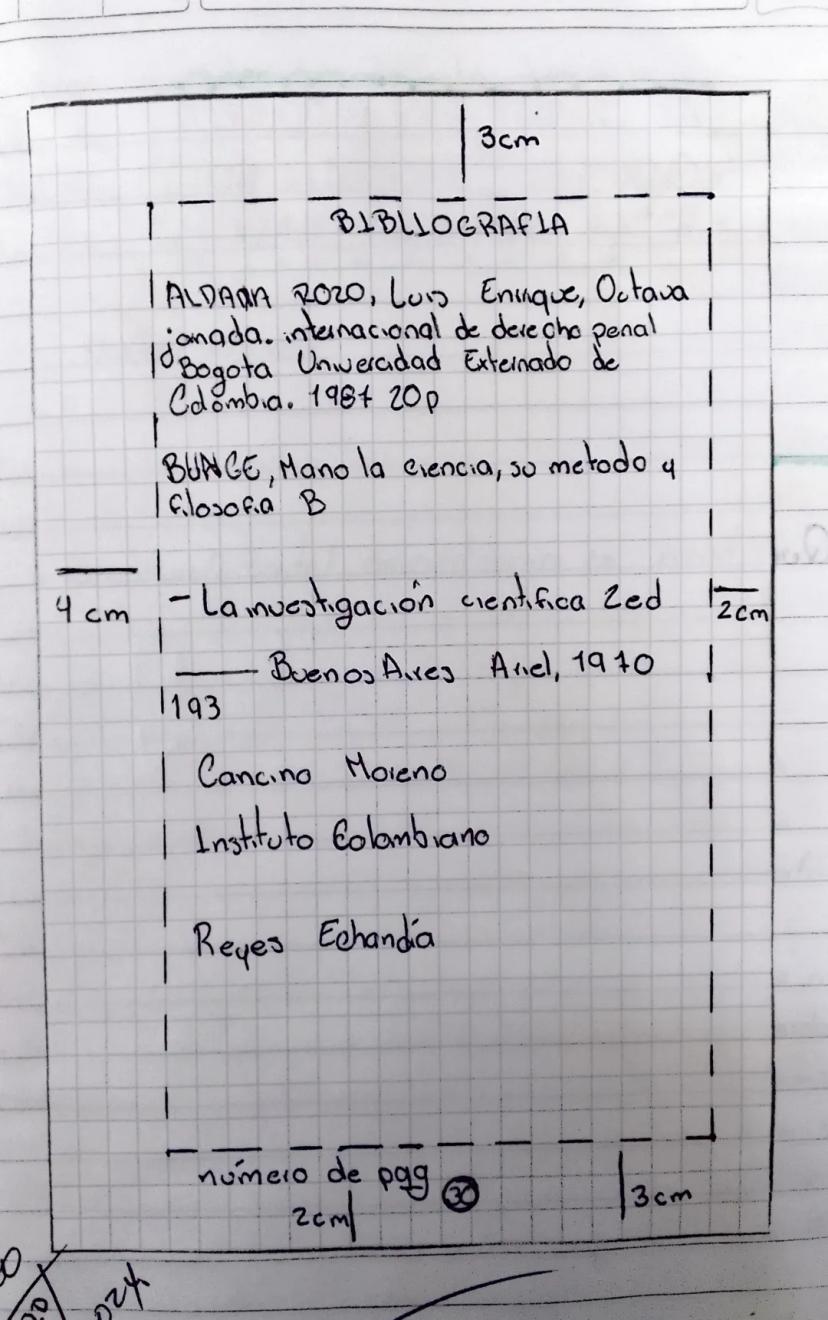 3cm
BIBLIOGRAFIA
ALDANA ROZO, Luis Enrique, Octava
jornada. internacional de derecho penal
Bogota Universidad Externado de
Colombia. 1987 20p
BUNGE, Mario la ciencia, su metodo y
filosofia B
4 cm
- La investigación cientifica 2ed
2cm
——— Buenos Aires Ariel, 1970
193
Cancino Moreno
Instituto Colombiano
Reyes Echandía
número de pag 30
2cm
3cm